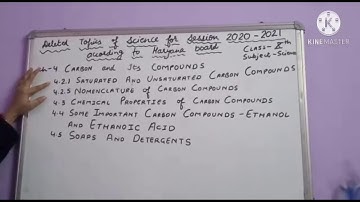 Deleted Topics of Science for Session 2020-2021
according to Haryana board
Class-Xth
Subject-Science
4 Carbon and Its Compounds
4.2.1 Saturated and Unsaturated Carbon Compounds
4.2.5 Nomenclature of Carbon Compounds
4.3 Chemical Properties of Carbon Compounds
4.4 Some Important Carbon Compounds - Ethanol
and Ethanoic Acid
4.5 Soaps and Detergents
KINEMASTER